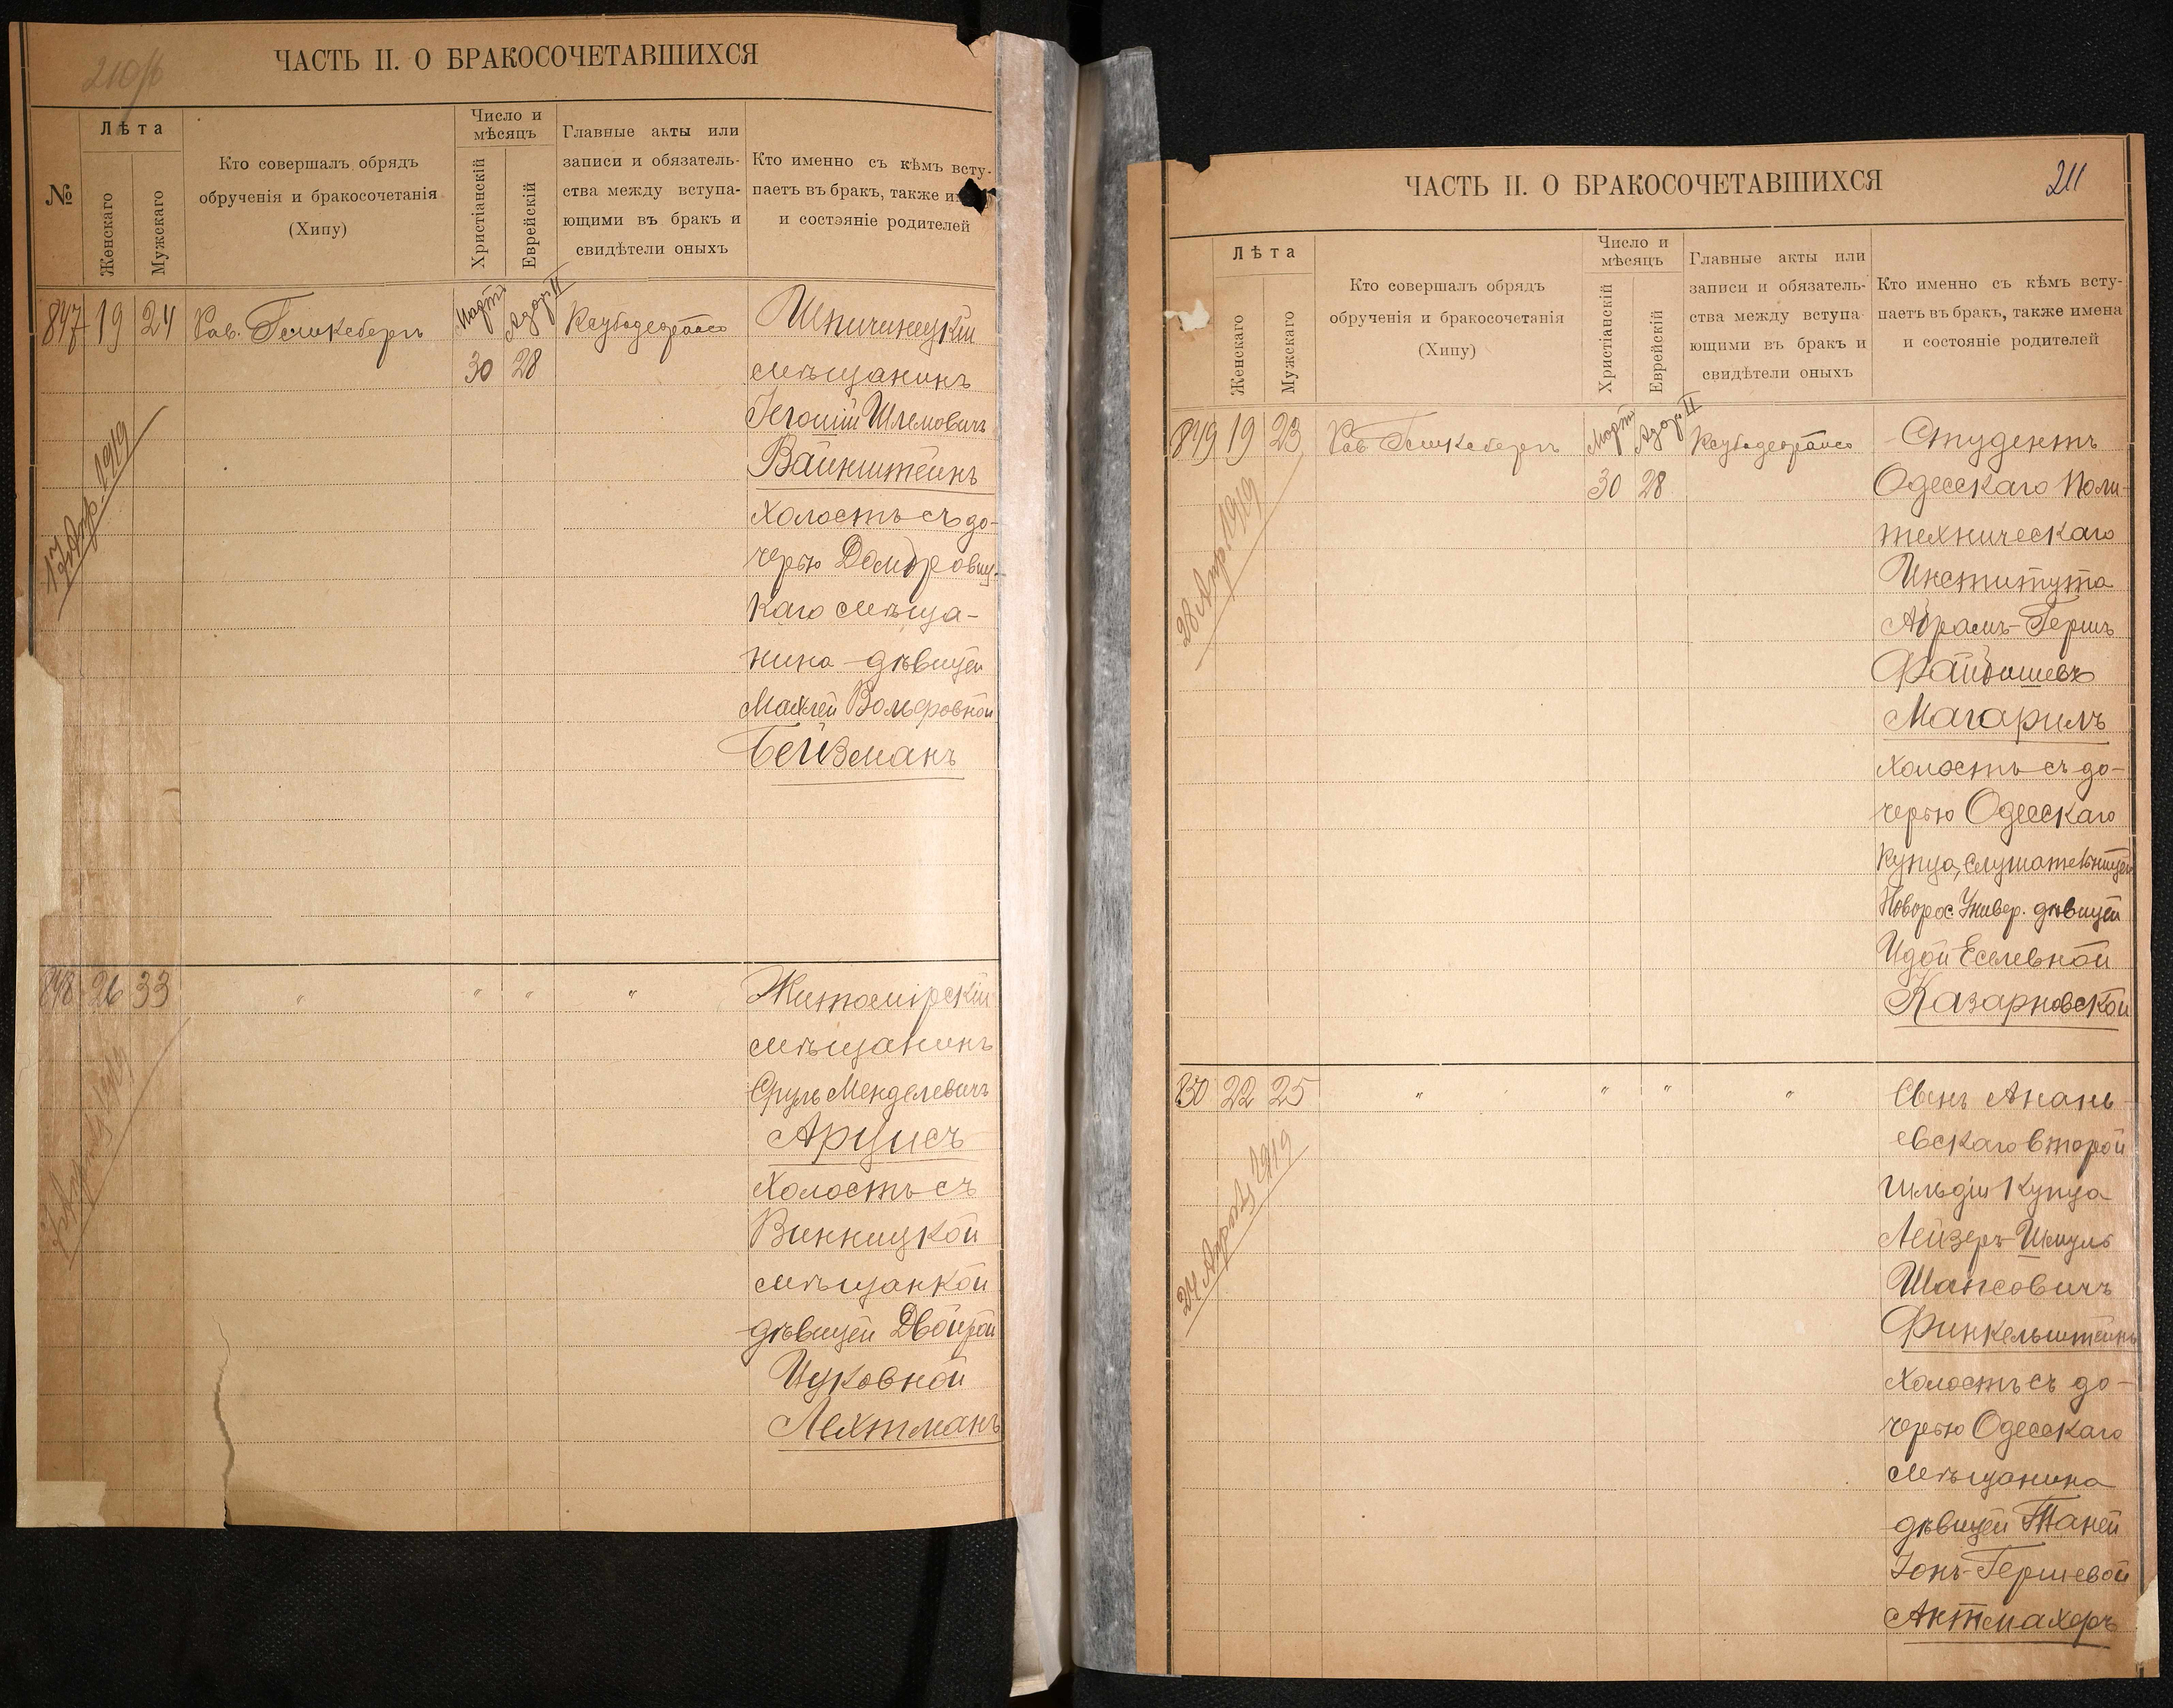 210/б
ЧАСТЬ II. О БРАКОСОЧЕТАВШИХСЯ
№
Лѣта
Женскаго
Мужскаго
Кто совершалъ обрядъ
обрученія и бракосочетанія
(Хипу)
Число и
мѣсяцъ
Христіанскій
Еврейскій
Главные акты или
записи и обязатель-
ства между вступа-
ющими въ бракъ и
свидѣтели оныхъ
Кто именно съ кѣмъ всту-
паетъ въ бракъ, также
и состэяніе родителей
847 19 24
Мартъ
30
Адоръ II
28
мѣщанинъ
Шлемовичъ
Вайнштейнъ
Холостъ съ до-
черью
каго мѣща-
нина дѣвицей
Махлей Вольфовной
Бейзманъ
17 Апр. 1919
848 26 33 " " " "
Житомірскій
мѣщанинъ
Сруль Менделевичъ
Арцисъ
Холостъ съ
Винницкой
мѣщанкой
дѣвицей Двойрой
Ицковной
Лехтманъ
ЧАСТЬ II. О БРАКОСОЧЕТАВШИХСЯ
211
Лѣта
Женскаго
Мужскаго
Кто совершалъ обрядъ
обрученія и бракосочетанія
(Хипу)
Число и
мѣсяцъ
Христіанскій
Еврейскій
Главные акты или
записи и обязатель-
ства между вступа
ющими въ бракъ и
свидѣтели оныхъ
Кто именно съ кѣмъ всту-
паетъ въ бракъ, также имена
и состояніе родителей
849 19 23
Мартъ
30
Адоръ II
28
Студентъ
Одесскаго Поли-
техническаго
Института
Абрамъ-Гершъ
Магарилъ
холостъ съ до-
черью Одесскаго
купца, слушательницей
Новорос. Универ. дѣвицей
Идой Еселевной
Казарновской
28 Апр. 1919
850 22 25 " " " "
Сынъ Анань-
евскаго второй
гильдіи купца
Лейзеръ-Шмуль
Финкельштейнъ
холостъ съ до-
черью Одесскаго
мѣщанина
дѣвицей Таней
Іонъ-Гершевой
Актмахеръ
24 1919